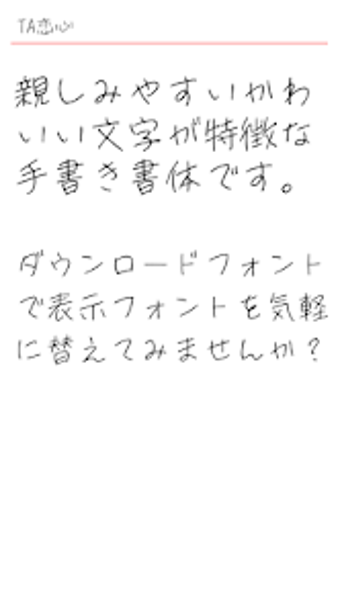 TA恋心
親しみやすいかわ
いい文字が特徴な
手書き書体です。
ダウンロードフォント
で表示フォントを気軽
に替えてみませんか？